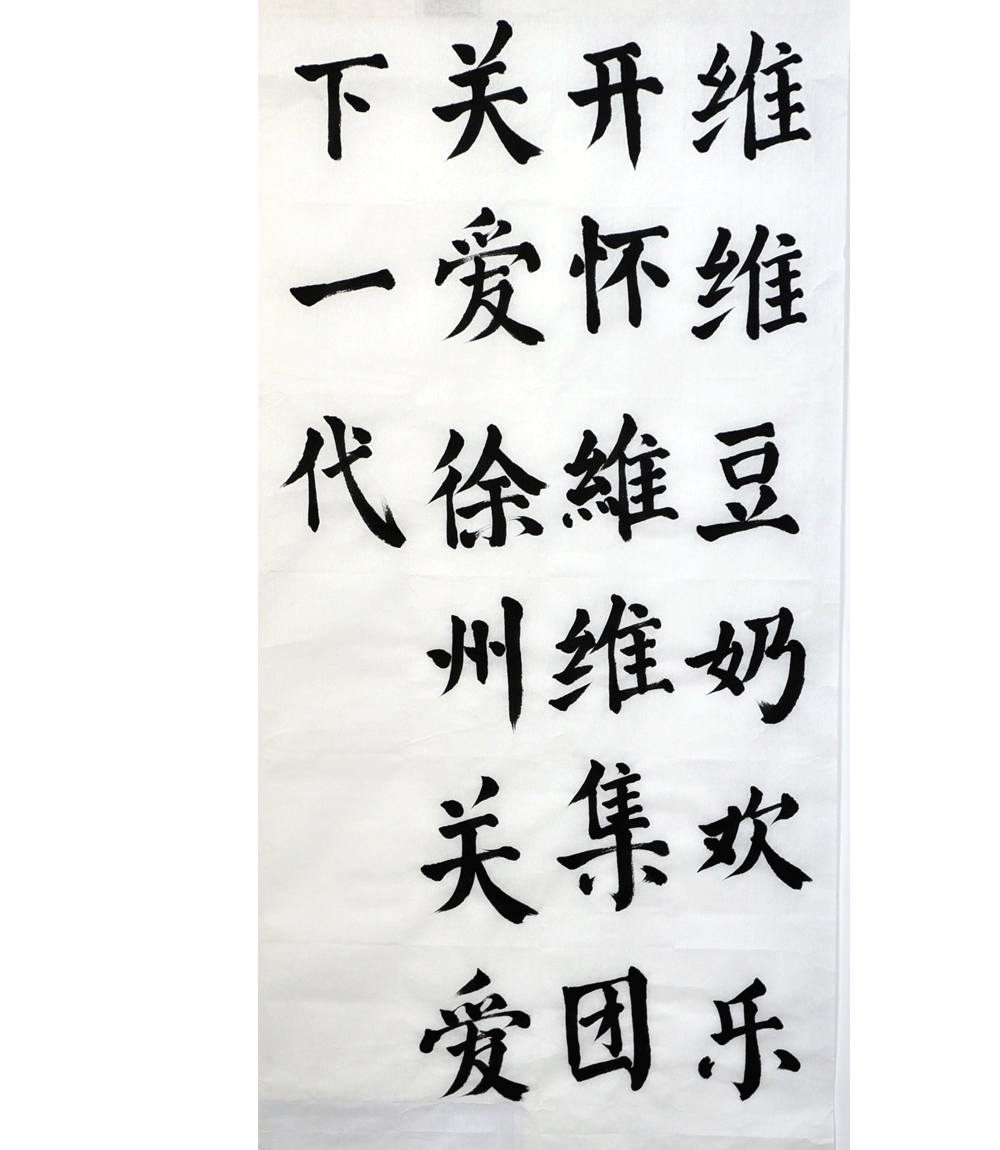 维维豆奶欢乐
开怀維维集团
关爱徐州关爱
下一代